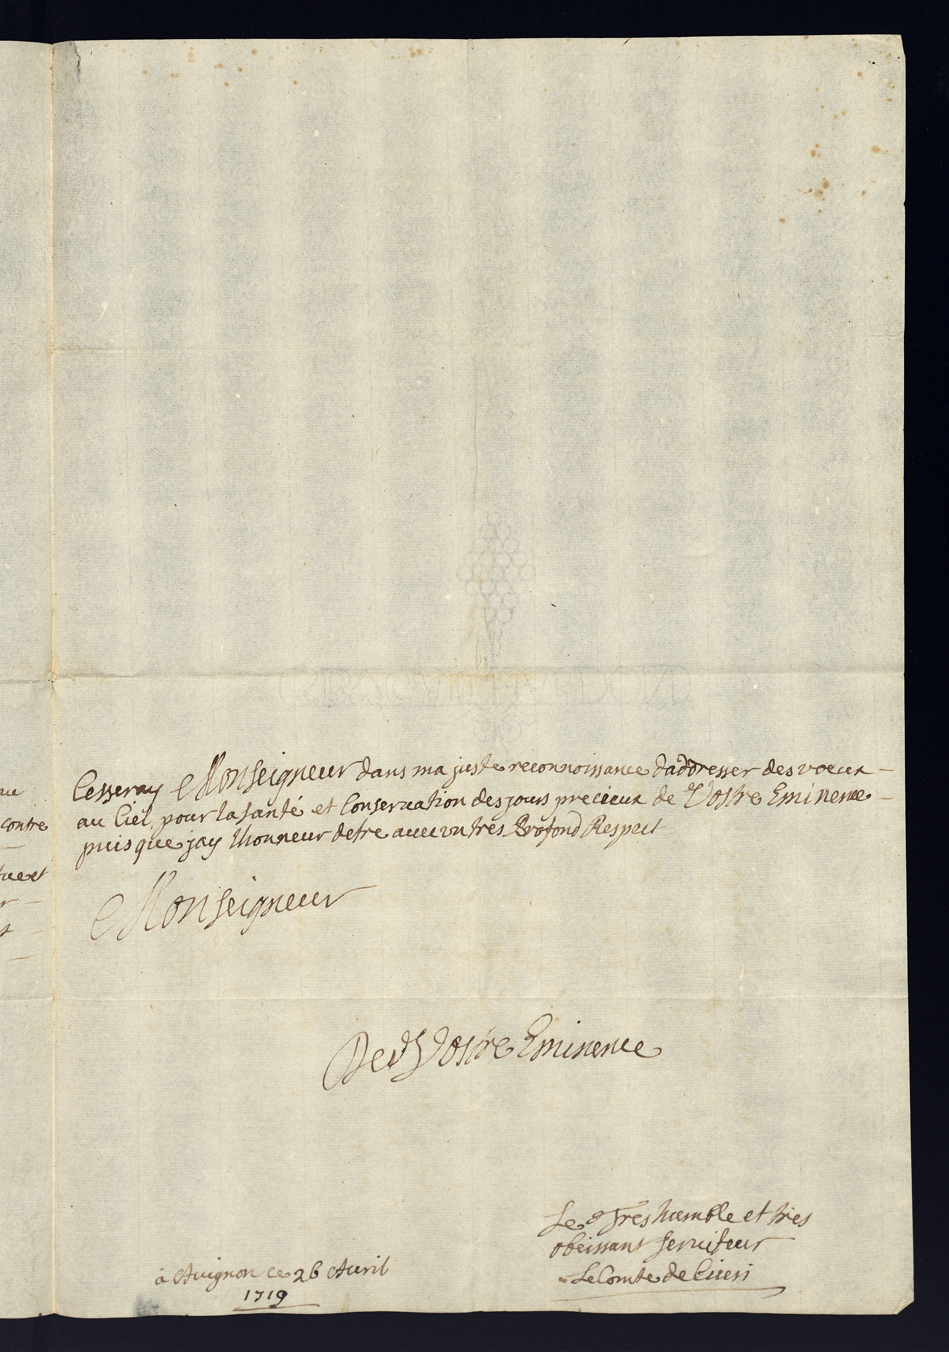 Cesseray Monseigneur dans ma juste reconnoissance daddresser des voeux
au Ciel pour la santé et Conservation des jours precieux de Vostre Eminence
puisque jay lhonneur detre avec un tres Profond Respect
Monseigneur
De Vostre Eminence
Le Tres humble et tres
obeissant serviteur
Le Comte de
à Avignon ce 26 Avril
1719
contre